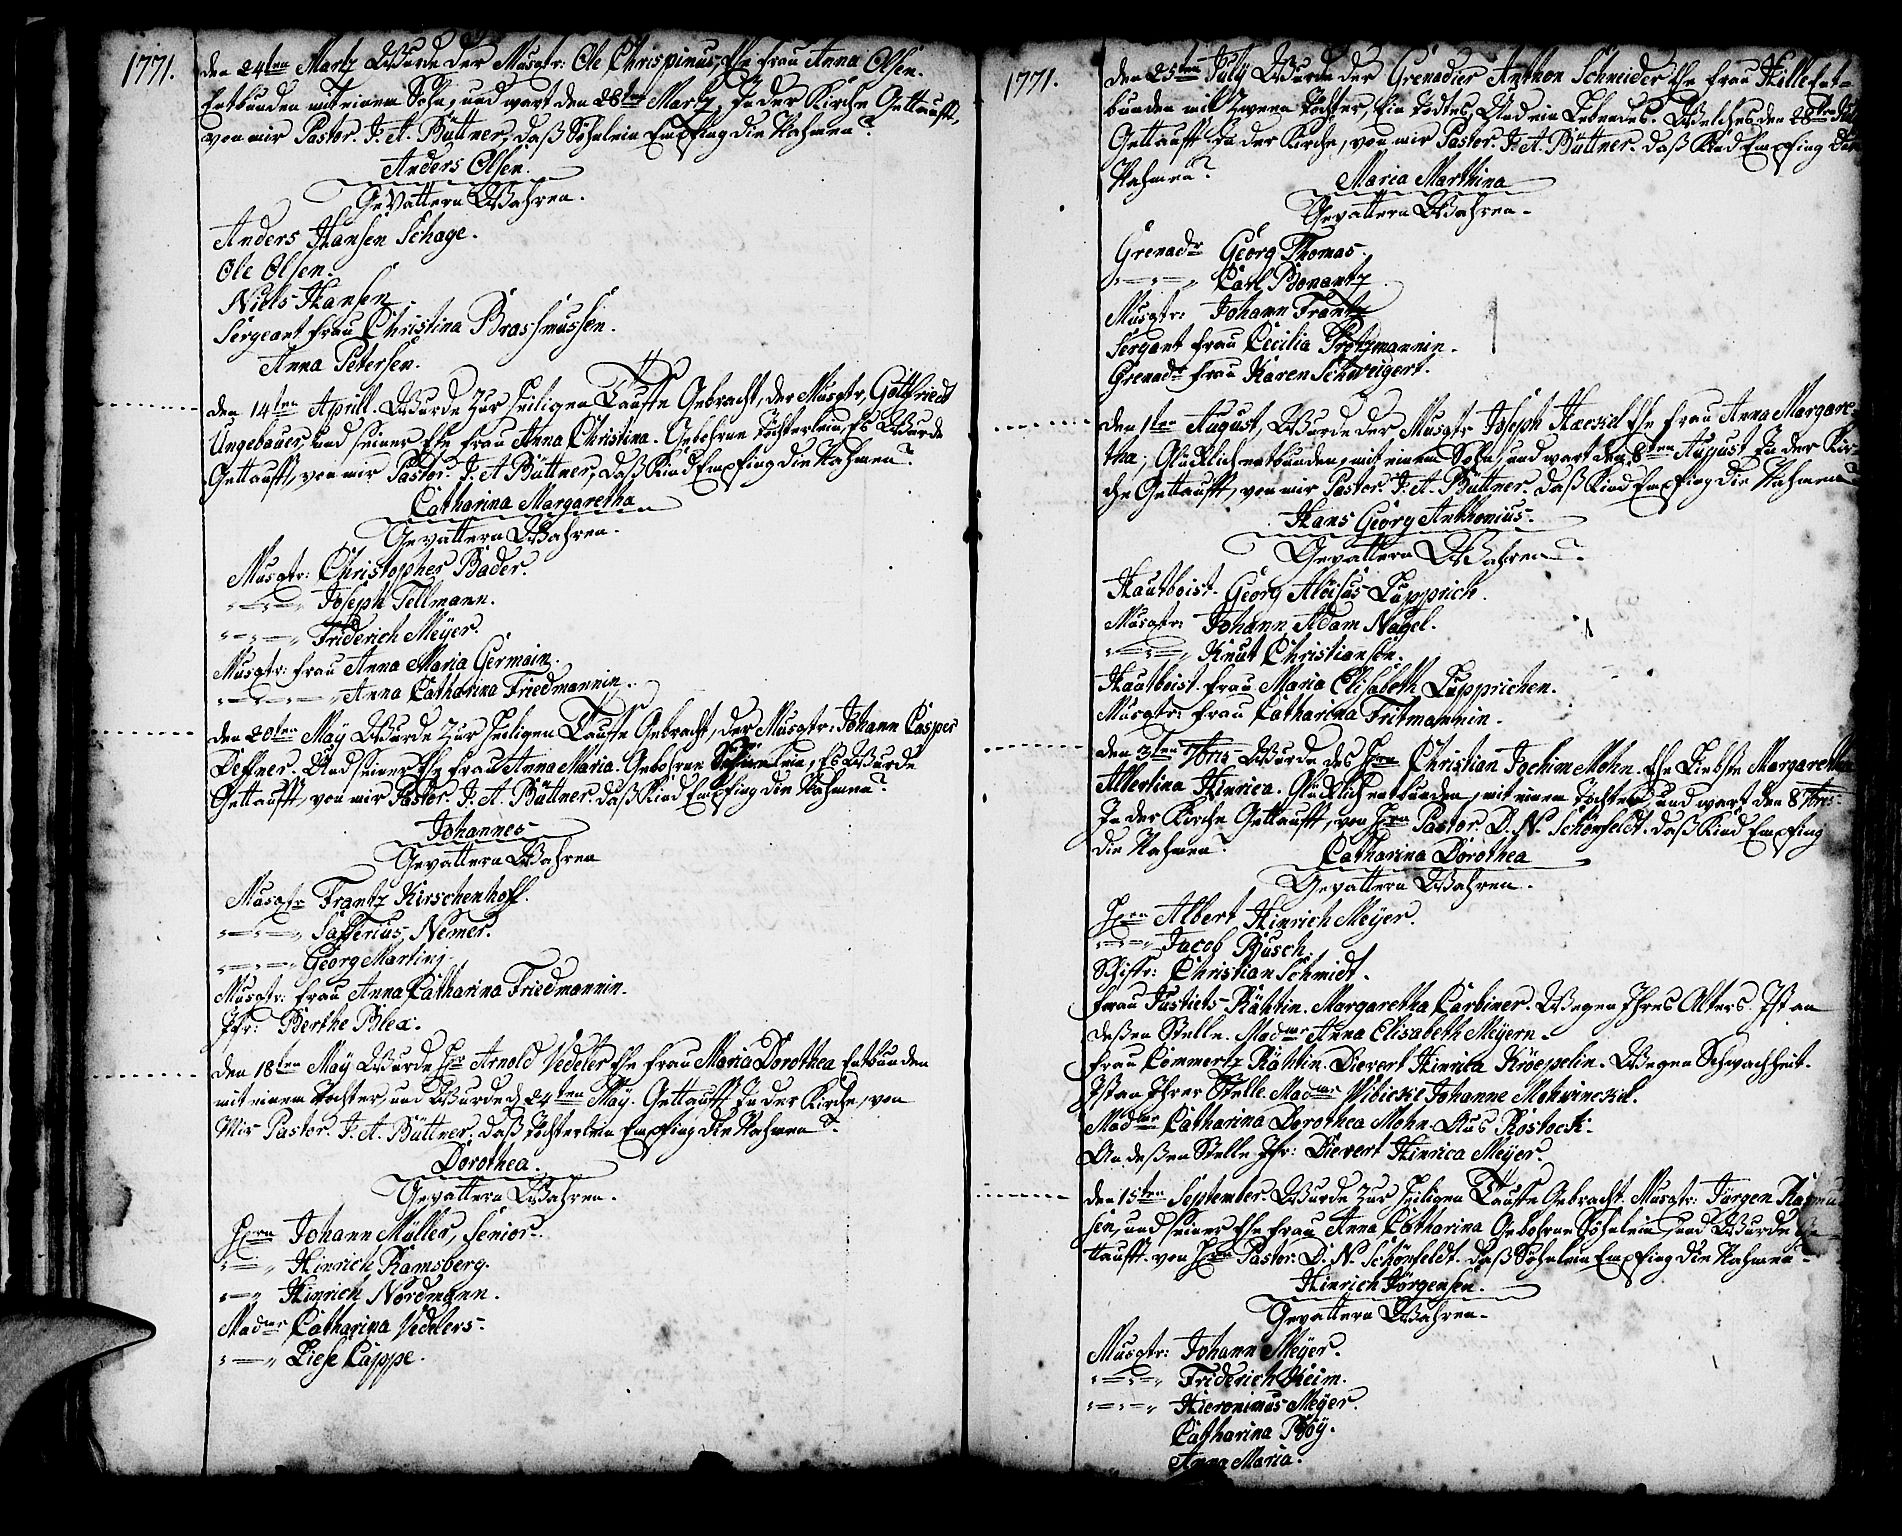 1771.
den 24ten Martz Wurde der Musqtr: Ole Chrispinus, Ehe frau Anna Olsen.
Entbunden mit einem Sohn, und wart den 28ten Martz, In der Kirche Gettaufft,
von mir Pastor. J. A. Büttner, daß Söhnlein Empfing die Nahmen
Anders Olsen.
Gevattern Wahren.
Anders Hansen Schage.
Ole Olsen.
Niels Hansen
Sergeant frau Christina Brassmussen.
Anna Petersen.
den 14ten Aprill. Wurde zur heiligen Tauffe Gebracht, der Musqtr, Gottfriedt
Ungebauer, und seiner Ehe frau Anna Christina. Gebohrne Töchterlein, Es Wurde
Gettaufft, von mir Pastor. J. A. Büttner, daß Kind Empfing die Nahmen
Catharina Margaretha
Gevattern Wahren.
Musqtr: Christopher Bader.
Joseph Tellmann.
Friderich Meÿer.
Musqtr: frau Anna Maria Germein.
Anna Catharina Friedmannin.
den 20ten Maÿ Wurde zur heiligen Tauffe Gebracht, der Musqtr: Johann Casper
Deffner. Und seiner Ehe frau Anna Maria. Gebohrne Söhnlein, Es Wurde
Gettaufft, von mir Pastor. J. A. Büttner. daß Kind Empfing die Nahmen
Johannes
Gevattern Wahren
Musqtr Frantz Kirschenhoff.
Safferius Nemer.
Georg Marting.
Musqtr: frau Anna Catharina Friedmannin.
Jfr: Berthe Blex.
den 18ten Maÿ Wurde Hrn Arnold Vedeler Ehe frau Maria Dorothea Entbunden
mit einem Tochter, und Wurde d 24ten Maÿ. Gettaufft In der Kirche, von
Mir Pastor. J. A. Büttner. daß Töchterlein Empfing die Nahmen
Dorothea.
Gevattern Wahren.
Hern Johann Müller, Senior.
Hinrich Ramsberg.
Hinrich Nordmann.
Madme Catharina Vedelers.
Liese Cappe.
1771.
den 25ten Julÿ Wurde der Grenadier Anthon Schneider Ehe frau Hille Ent-
bunden mit Zween Töchter, Ein Todtes, Und ein Lebendes. Welches den 28ten
Gettaufft In der Kirche, von mir Pastor. J. A. Büttner. daß Kind Empfing die
Nahmen
Maria Marthina
Gevattern Wahren.
Grenadr Georg Thomas.
Carl Bonantz
Musqtr: Johann Frantz
Sergant frau Cecilia Protzmannin.
Grenadr frau Karen Schweigert.
den 1ten August, Wurde der Musqtr Joseph Haeckel Ehe frau Anna Margare-
tha; Glücklich entbunden, mit einem Sohn, und wart den 8ten August In der Kir-
che Gettaufft, von mir Pastor. J. A. Büttner. daß Kind Empfing die Nahmen
Hans Georg Anthonius.
Gevattern Wahren.
Hautboist. Georg Aloisus Lupprich.
Musqtr: Johann Adam Nagel.
Knut Christiansen.
Hautboist. frau Maria Elisabeth Lupprichen.
Musqtr: frau Catharina Fritmannin.
den 3ten 7bris Wurde des Hrn Christian Jochim Mohn. Ehe Liebste Margaretha
Albertina Hinrica. Glücklich entbunden, mit einem Tochter, und wart den 8 7bris
In der Kirche Gettaufft, von Hrn Pastor. D. N. Schönfeldt. daß Kind Empfing
die Nahmen.
Catharina Dorothea
Gevattern Wahren.
Hern Albert Hinrich Meÿer.
Jacob Busch,
Schiffr: Christian Schmidt.
frau Justiets-Rähtin. Margaretha Carbiner. Wegen Ihres Alters. Ist an
deßen Stelle. Madme Anna Elisabeth Meÿern.
frau Commertz Rähtin. Dievert Hinrica Kröepelin. Wegen Schwachheit.
Ist an Ihrer Stelle. Madme Wibicke Johanne Mohwinckel.
Madme Catharina Dorothea Mohn. Aus Rostock.
An deßen Stelle Jfr: Dievert Hinrica Meÿer.
den 15ten September. Wurde zur heiligen Tauffe Gebracht. Musqtr: Jürgen Rasmu-
sen, und seiner Ehe frau Anna Catharina Gebohrne Söhnlein, und Wurde Ge-
ttaufft. von Hrn Pastor. D. N. Schönfeldt. daß Söhnlein Empfing die Nahmen
Hinrich Jörgensen.
Gevattern Wahren.
Musqtr: Johann Meÿer.
Friderich Keim.
Hieronimus Meÿer.
Catharina Boÿ.
Anna Maria.